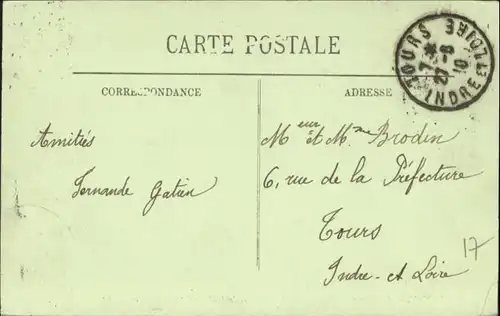 CARTE POSTALE
CORRESPONDANCE
ADRESSE
TOURS
7*
27-8
10
INDRE ET LOIRE
Amitiés
Fernande Gatien
Meur et Mme Brodin
6, rue de la Préfecture
Tours
Indre-et Loire
17